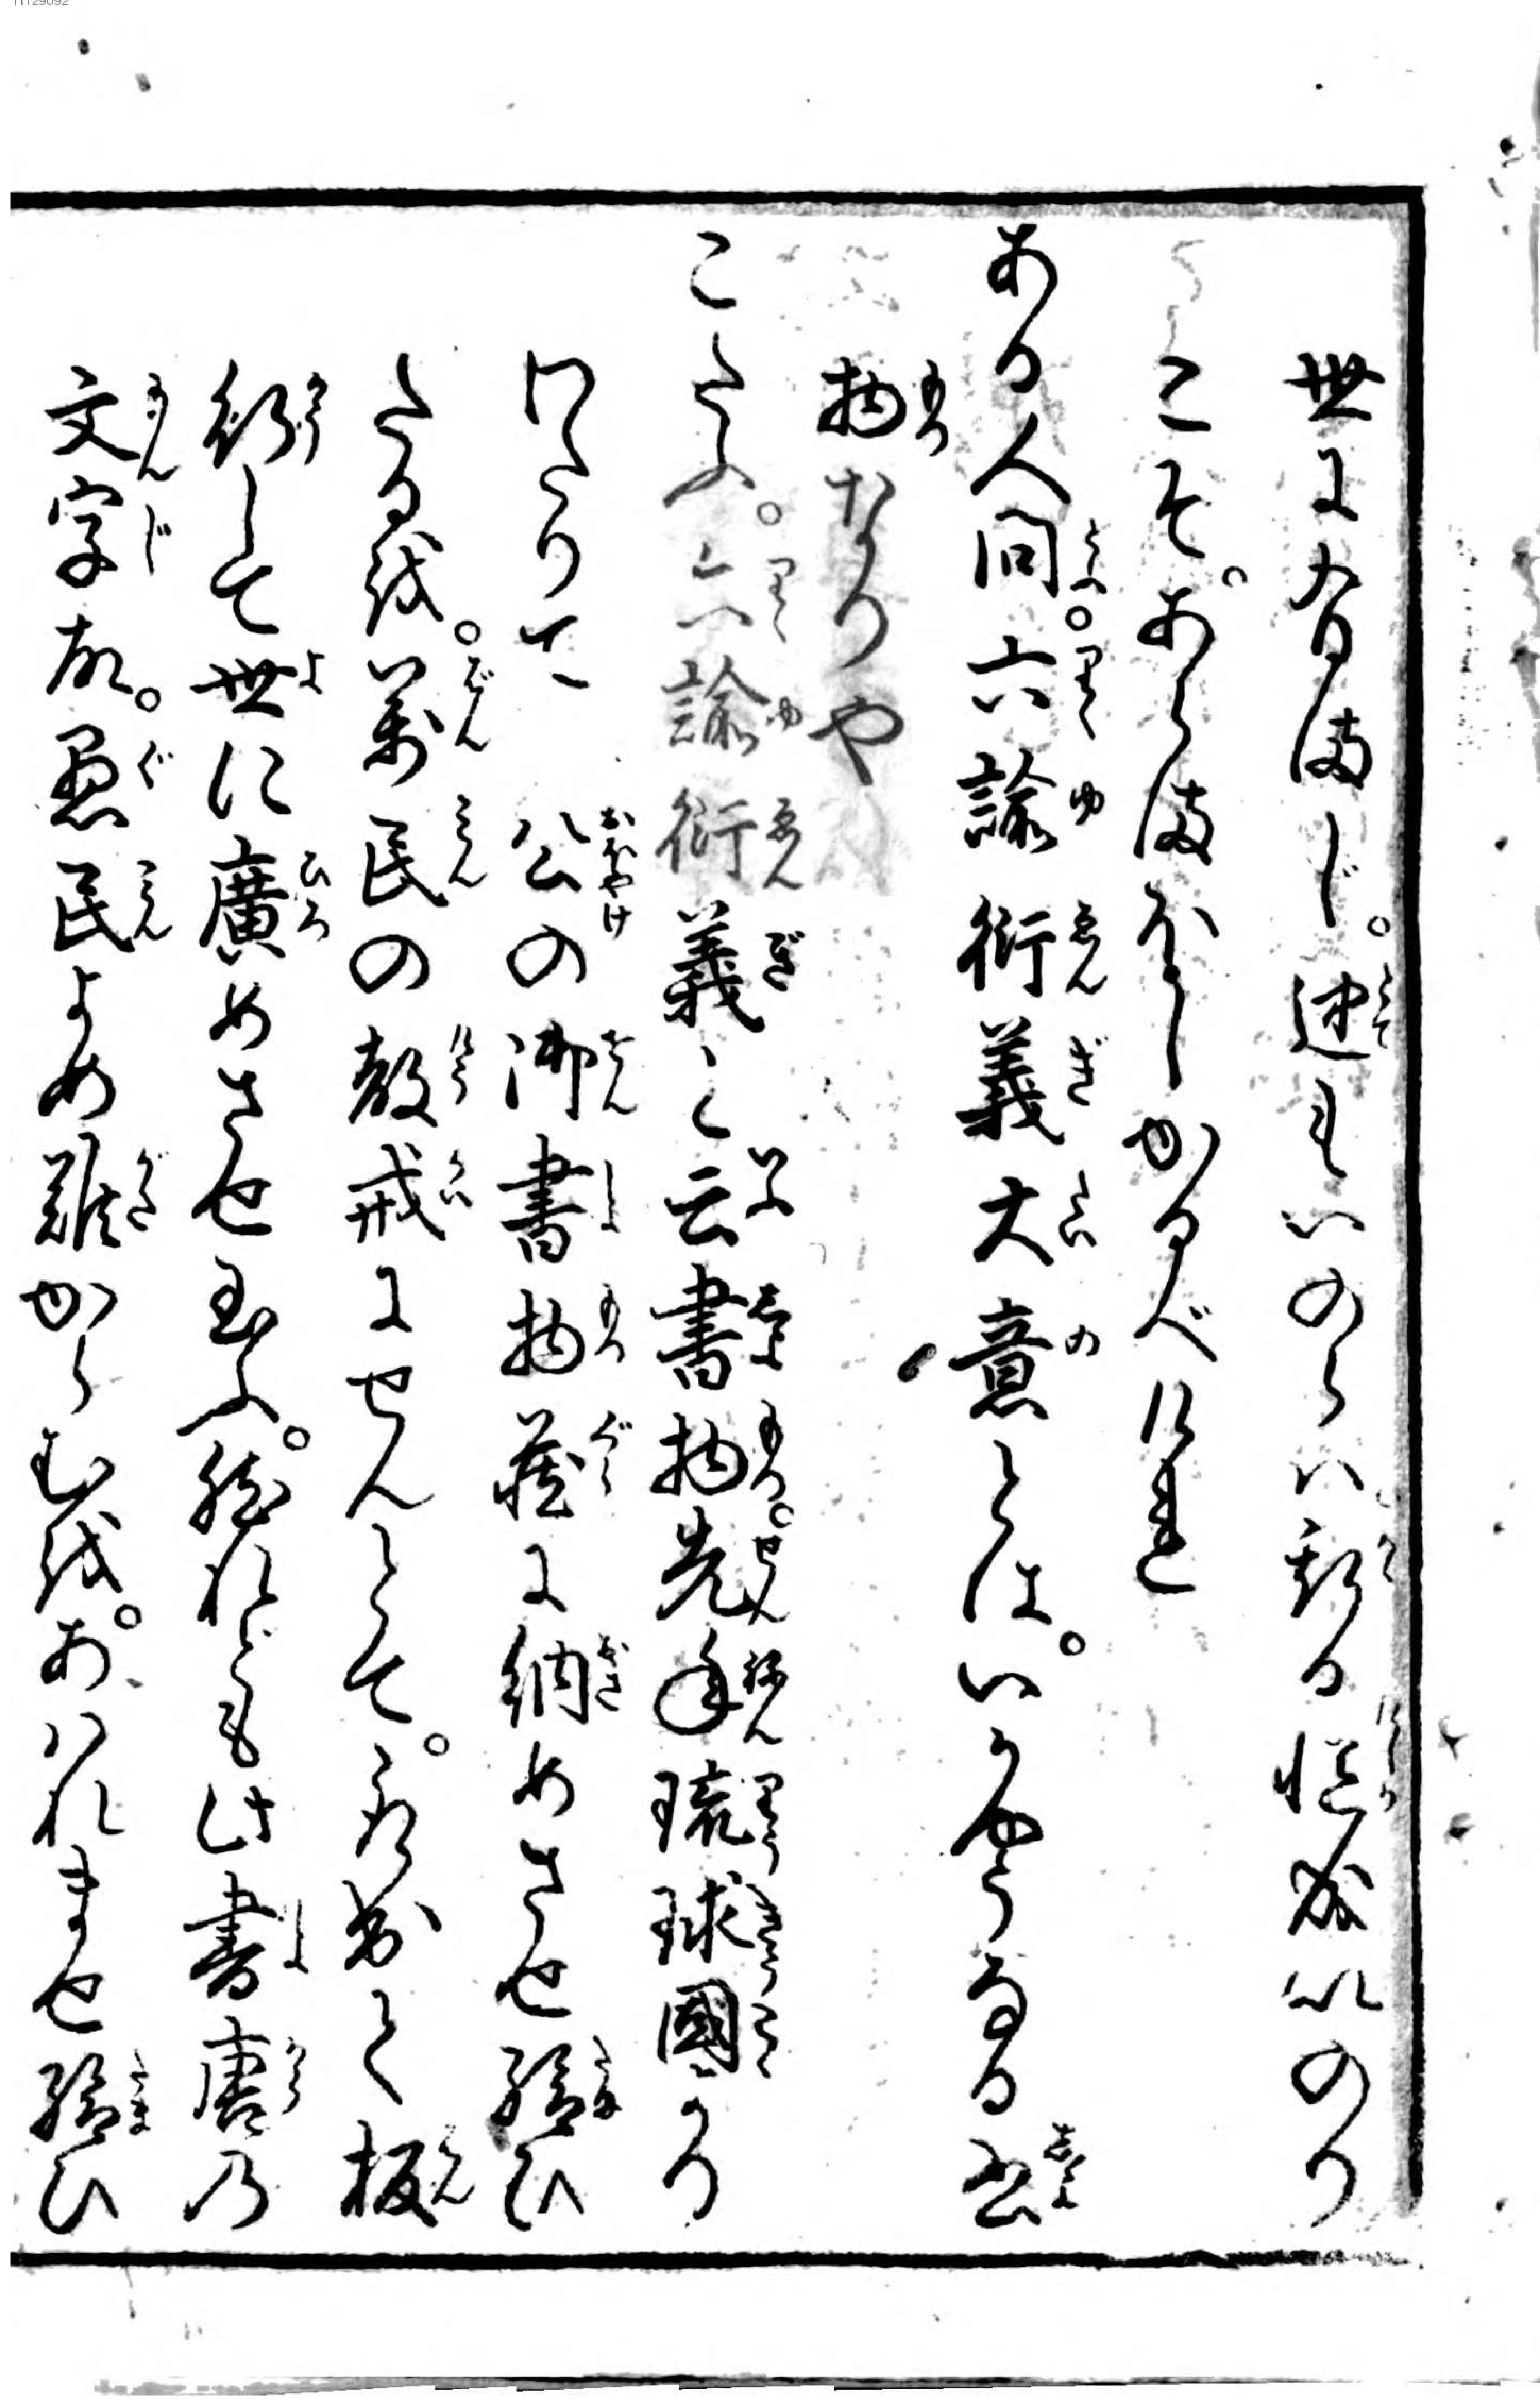 世に有まじ。迚もいのらハ新る悵成いのり
こそ。あらまほしかるべけれ
ある人問。六諭衍義大意とは。いかやうなる書
物なりや
こたふ。六諭衍義と云書物。先年琉球國より
わたりて 公の御書物蔵に納めさせ給ひ
たるを。萬民の教戒にせんとて。取出て板
行して世に廣めさせ玉ふ。然れども此書唐の
文字故。愚民よめ難からむを。あハれませ給ひ